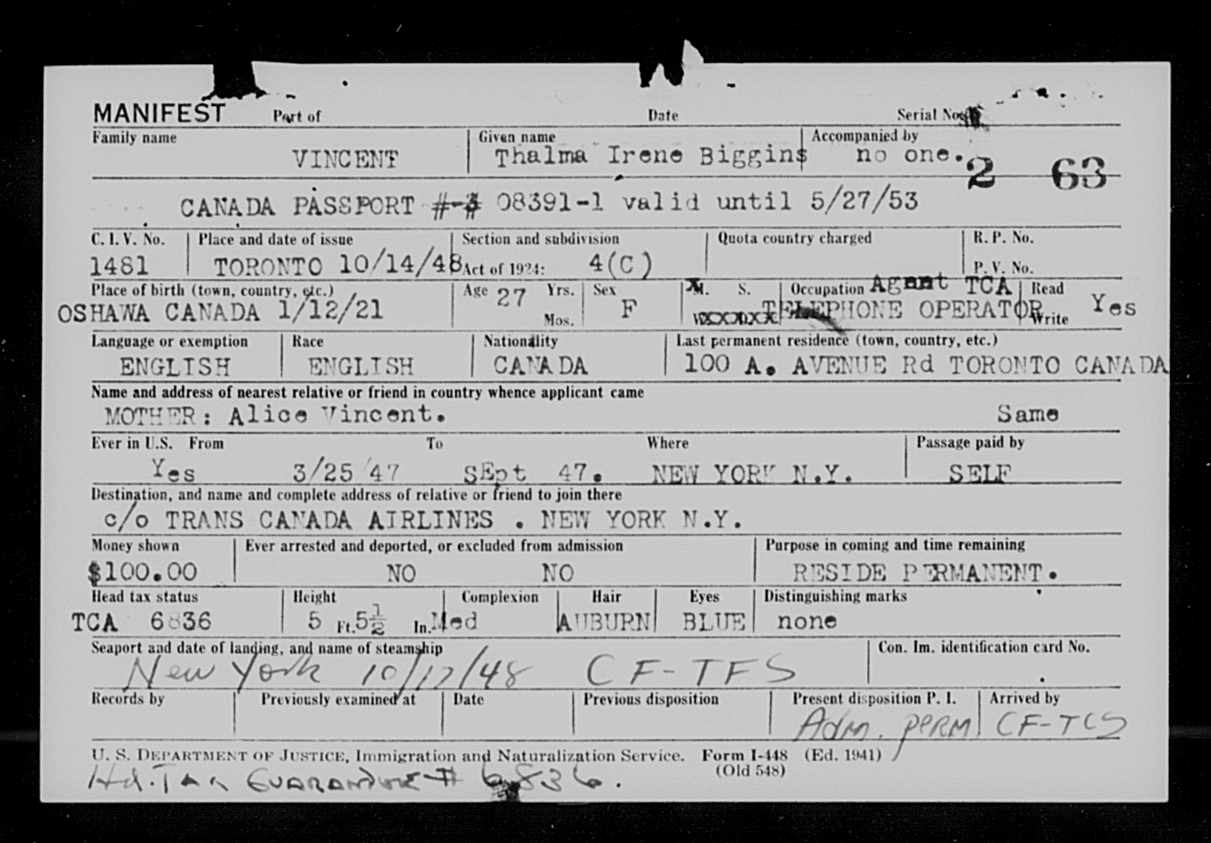 MANIFEST Part of Date Serial No.
Family name Given name Accompanied by
VINCENT Thalma Irene Biggins no one.
2 63
CANADA PASSPORT # 08391-1 valid until 5/27/53
C. I. V. No. Place and date of issue Section and subdivision Quota country charged R. P. No.
1481 TORONTO 10/14/48 Act of 1924: 4(C) P. V. No.
Place of birth (town, country, etc.) Age 27 Yrs. Sex M. S. Occupation Agent TCA Read
OSHAWA CANADA 1/12/21 Mos. F TELEPHONE OPERATOR Write Yes
Language or exemption Race Nationality Last permanent residence (town, country, etc.)
ENGLISH ENGLISH CANADA 100 A. AVENUE Rd TORONTO CANADA
Name and address of nearest relative or friend in country whence applicant came
MOTHER: Alice Vincent. Same
Ever in U.S. From To Where Passage paid by
Yes 3/25/47 SEpt 47. NEW YORK N.Y. SELF
Destination, and name and complete address of relative or friend to join there
c/o TRANS CANADA AIRLINES . NEW YORK N.Y.
Money shown Ever arrested and deported, or excluded from admission Purpose in coming and time remaining
$100.00 NO NO RESIDE PERMANENT.
Head tax status Height Complexion Hair Eyes Distinguishing marks
TCA 6836 5 Ft. 5½ In. Med AUBURN BLUE none
Seaport and date of landing, and name of steamship Con. Im. identification card No.
New York 10/17/48 CF-TFS
Records by Previously examined at Date Previous disposition Present disposition P. I. Arrived by
Adm. PERM CF-TCS
U. S. DEPARTMENT OF JUSTICE, Immigration and Naturalization Service. Form I-448 (Ed. 1941)
(Old 548)
Hd. Tax GUARANTEE # 6836.